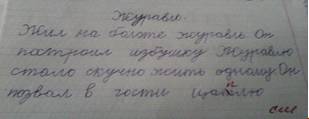 Журавль.
Жил на болоте журавль Он
построил избушку Журавлю
стало скучно жить одному Он
позвал в гости цаплю
см